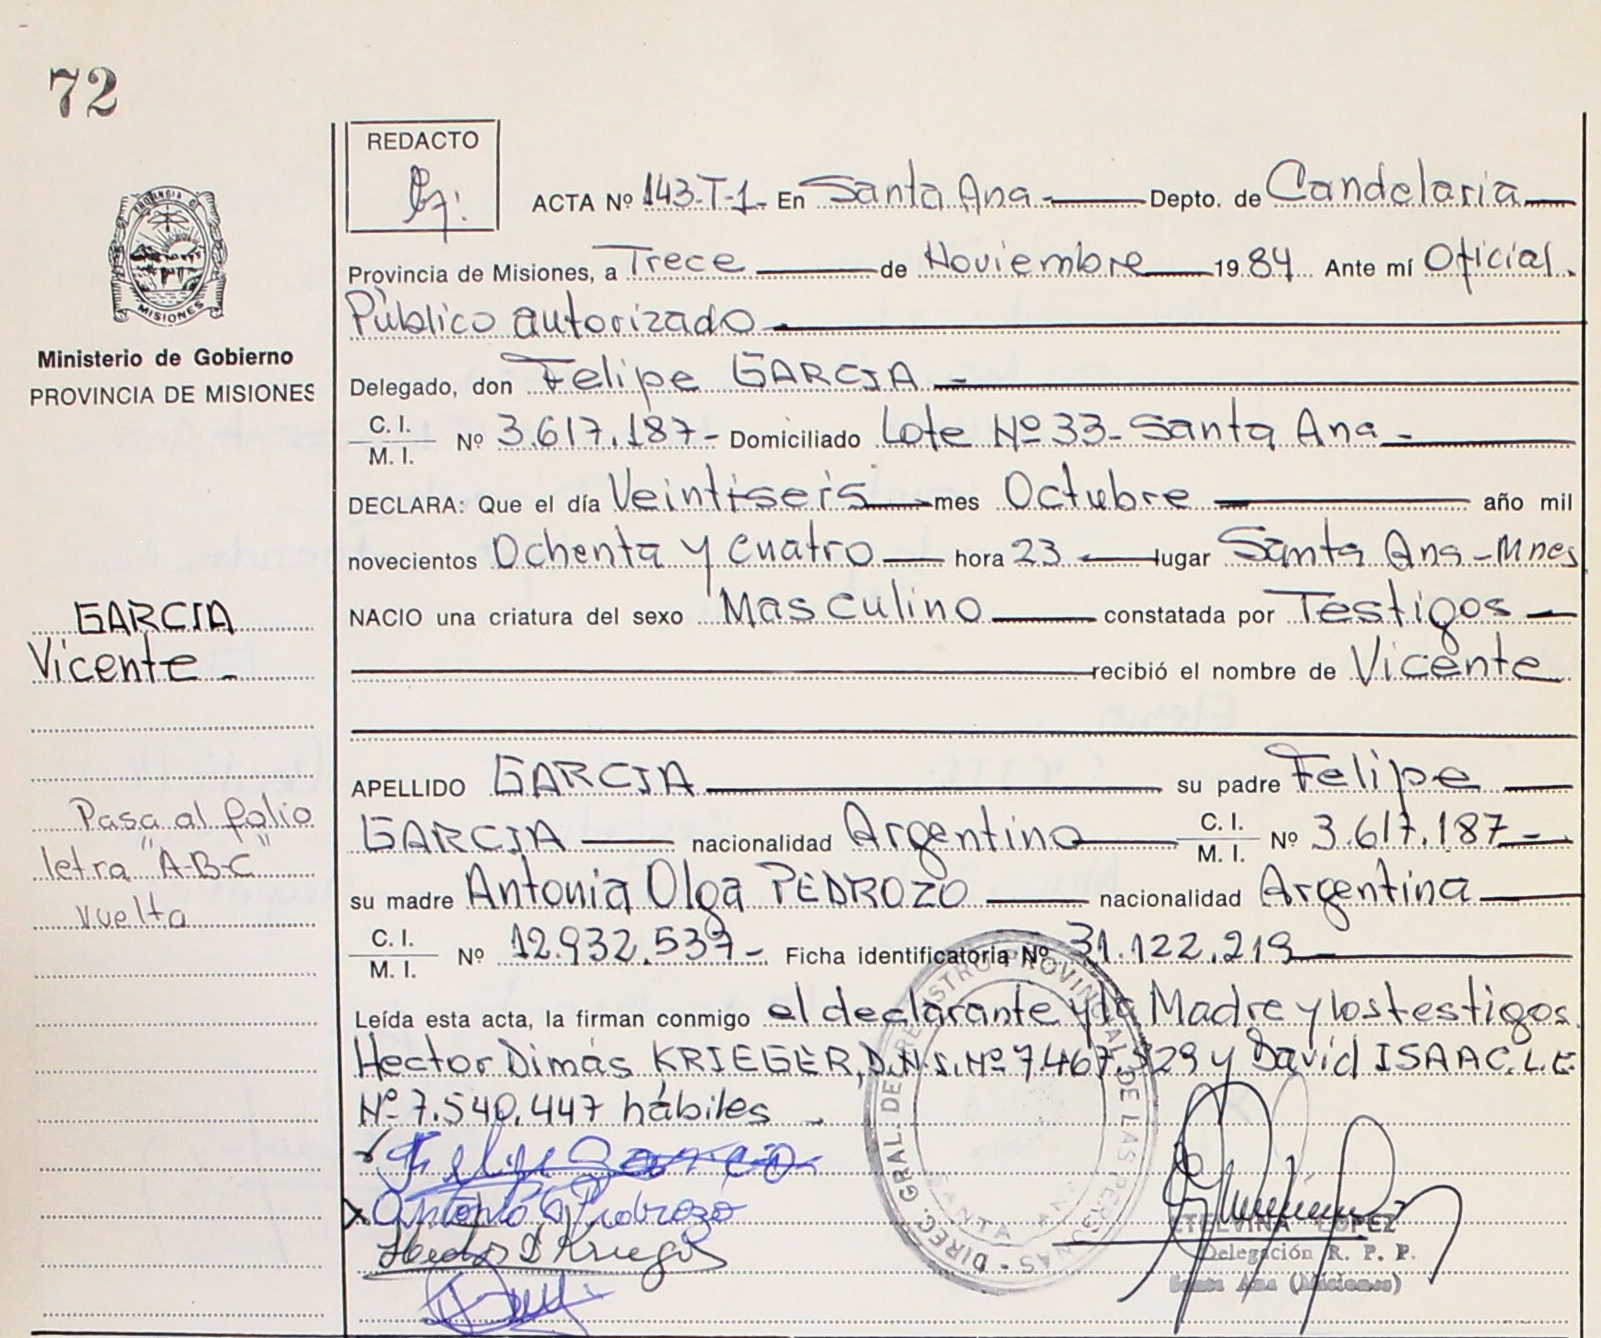 72
REDACTO
ACTA Nº 143-T-1- En Santa Ana Depto. de Candelaria
Provincia de Misiones, a Trece de Noviembre 1984 Ante mí Oficial
Público autorizado
Ministerio de Gobierno
PROVINCIA DE MISIONES
Delegado, don Felipe GARCIA -
C. I.
M. I. Nº 3.617.187- Domiciliado Lote Nº 33- Santa Ana -
DECLARA: Que el día Veintiseis mes Octubre año mil
novecientos Ochenta y cuatro hora 23 lugar Santa Ana - Mnes
GARCIA
Vicente -
NACIO una criatura del sexo Masculino constatada por Testigos
recibió el nombre de Vicente
APELLIDO GARCIA su padre Felipe
GARCIA nacionalidad Argentino C. I.
M. I. Nº 3.617.187-
Pasa al folio
letra "A-B-C"
vuelta
su madre Antonia Olga PEDROZO nacionalidad Argentina
C. I.
M. I. Nº 12.932.537- Ficha identificatoria Nº 31.122.219
Leída esta acta, la firman conmigo el declarante y la Madre y los testigos
Hector Dimás KRIEGER, D.N.I. Nº 7.467.329 y David ISAAC. L.E
Nº 7.540.447 hábiles -
Felipe Garcia
Antonia O Pedrozo
Hector D Krieger
DIREC. GRAL. DEL REGISTRO PROVINCIAL DE LAS PERSONAS -
SANTA ANA
MISIONES
ETELVINA LOPEZ
Delegación R. P. P.
Santa Ana (Misiones)